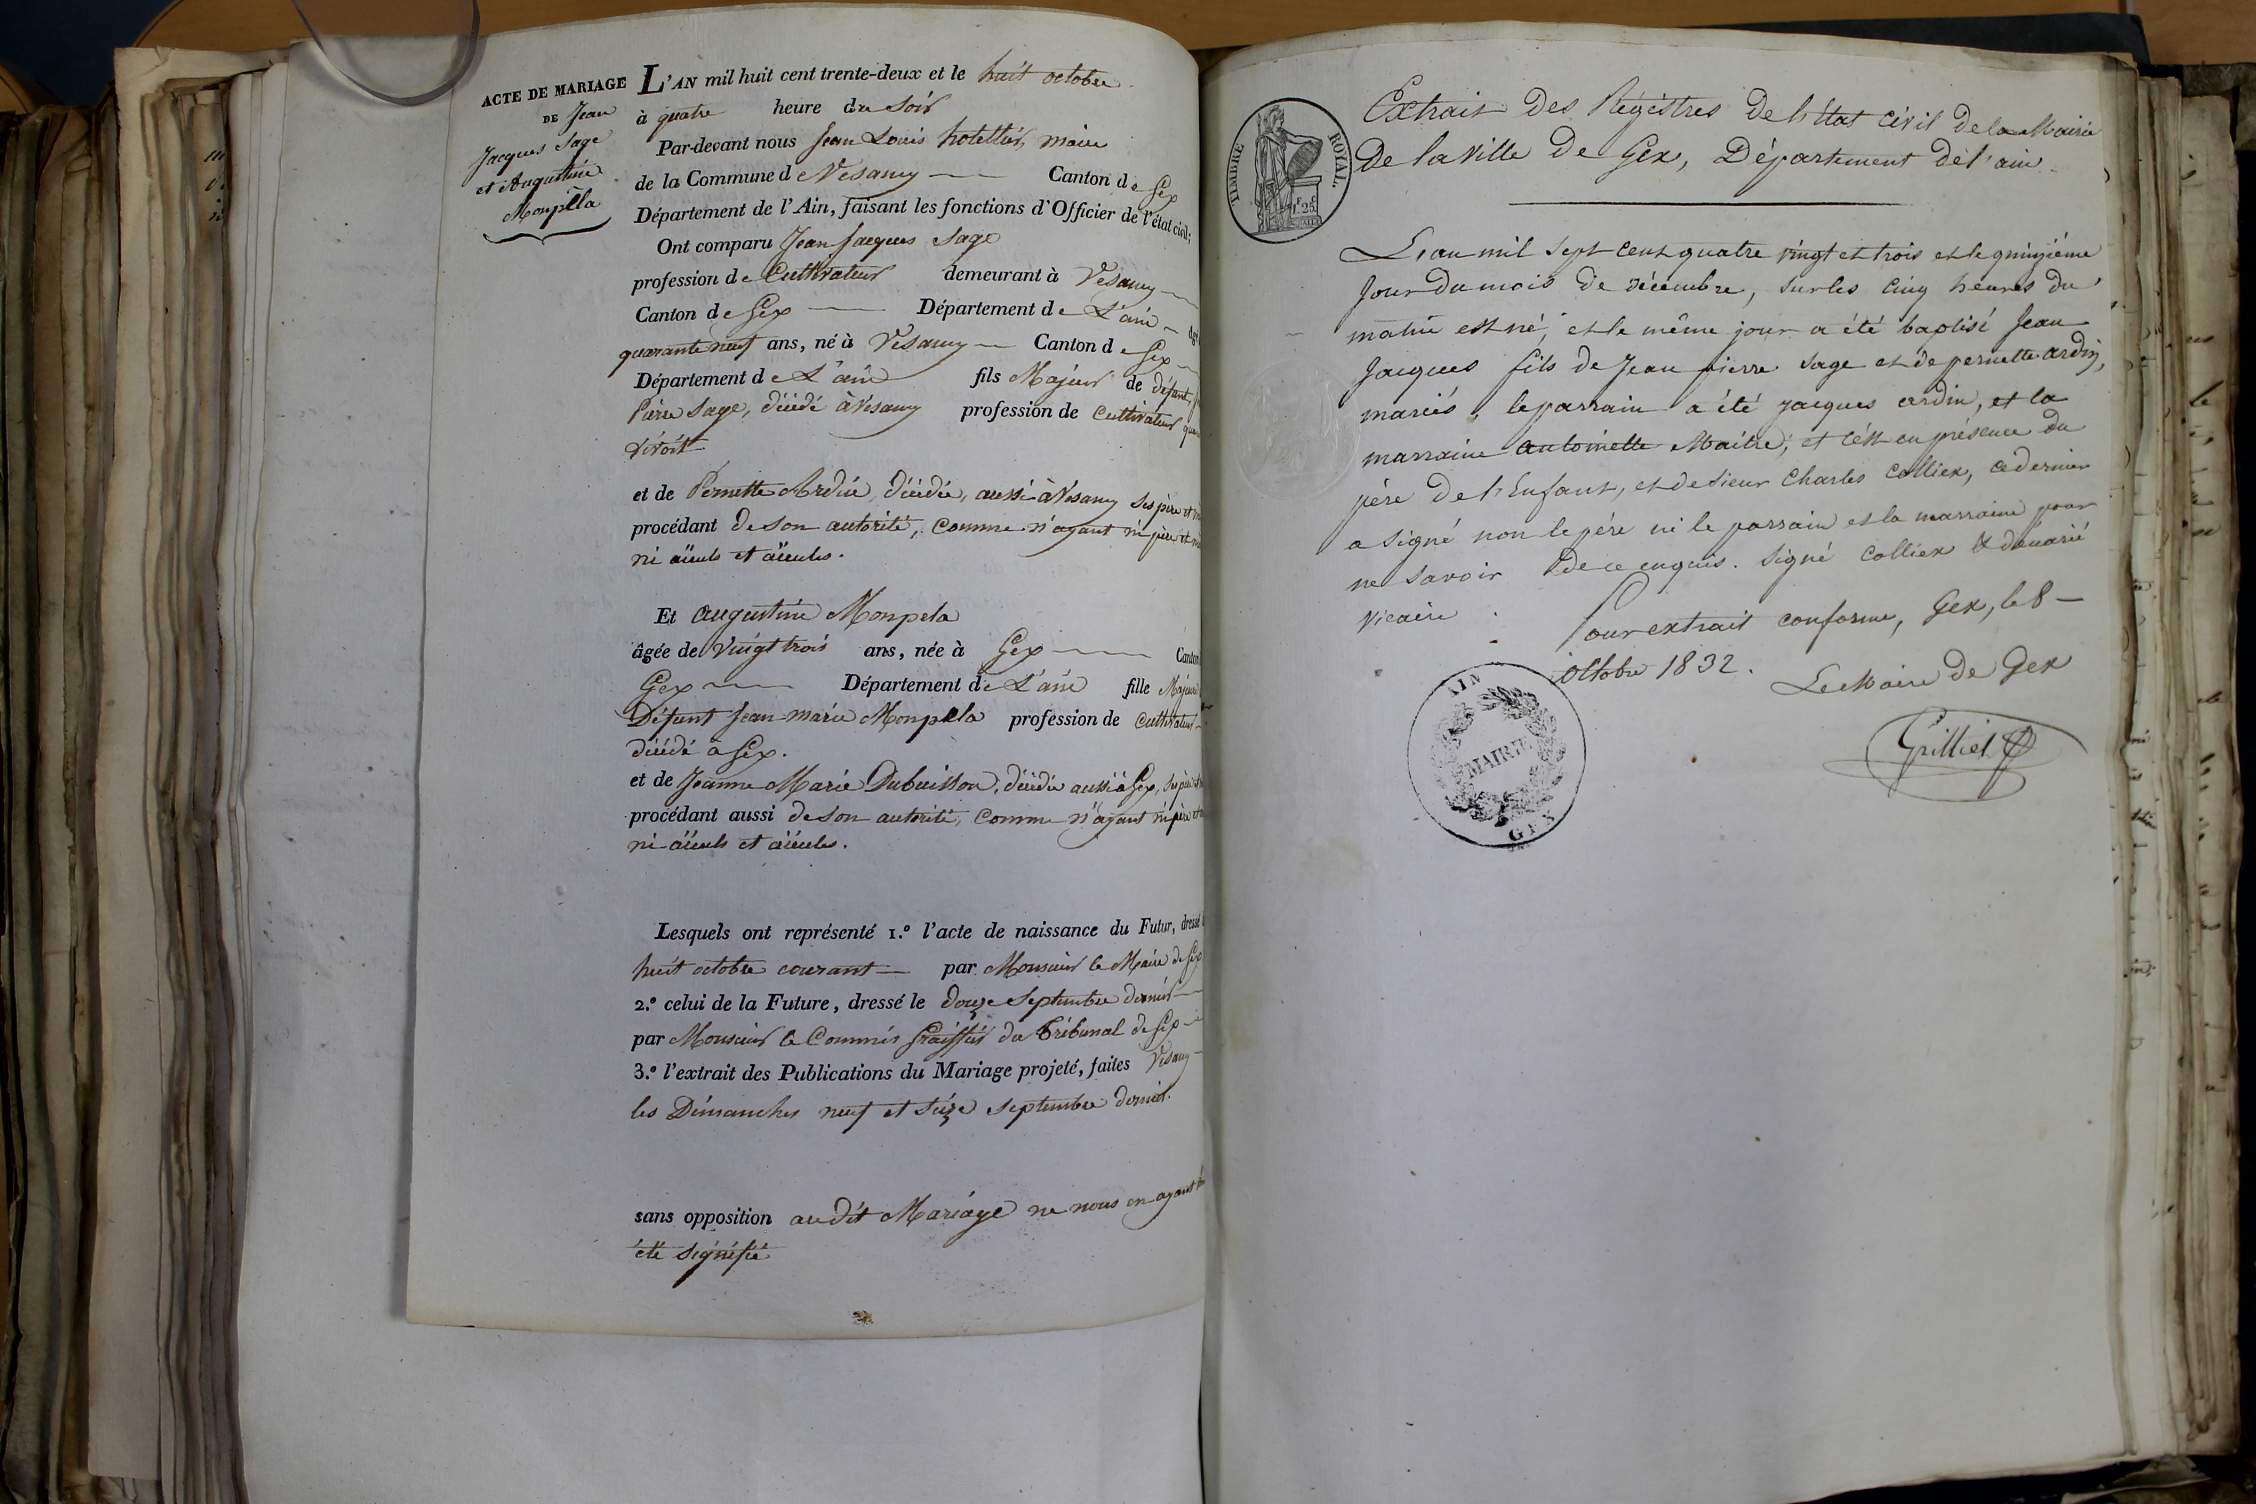 ACTE DE MARIAGE
DE Jean
Jacques Sage
et Augustine
Monpéla
L'AN mil huit cent trente-deux et le huit octobre
à quatre heure du Soir
Par-devant nous Jean Louis hotellier, maire
de la Commune de Vesancy Canton de Gex
Département de l'Ain, faisant les fonctions d'Officier de l'état civil;
Ont comparu Jean Jacques Sage
profession de Cultivateur demeurant à Vesancy
Canton de Gex Département de L'ain
quarante neuf ans, né à Vesancy Canton de Gex
Département de L'ain fils Majeur de défunt
Pierre Sage, décédé à Vesancy profession de cultivateur
vivoit
et de Pernette Ardin, décédée, aussi à Vesancy ses père et
procédant de son autorité, comme n'ayant ni père et
ni aïeuls et aïeules.
Et augustine Monpela
âgée de vingt trois ans, née à Gex Canton
Gex Département de L'ain fille Majeure
Défunt Jean marie Monpela profession de cultivateur
décédé à Gex.
et de Jeanne Marie Dubuisson, décédée aussi à Gex, ses père
procédant aussi de son autorité, comme n'ayant ni père et
ni aïeuls et aïeules.
Lesquels ont représenté 1.º l'acte de naissance du Futur, dressé
huit octobre courant par Monsieur le Maire de Gex
2.º celui de la Future, dressé le douze Septembre dernier
par Monsieur le Commis Graiffier du Tribunal de Gex
3.º l'extrait des Publications du Mariage projeté, faites Vesancy
les Dimanches neuf et seize septembre dernier.
sans opposition au dit Mariage ne nous en ayant
été signifié
TIMBRE ROYAL
1F. 25C.
Extrait Des Régistres De l'Etat civil De la Mairie
De la Ville De Gex, Département de l'ain
L'an mil sept cent quatre vingt et trois et le quinzième
Jour du mois de décembre, sur les cinq heures du
matin est né, et le même jour a été baptisé Jean
Jacques fils de Jean pierre sage et de pernette ardin,
mariés, le parrain a été jacques ardin, et la
marraine antoinette Maitre; et c'est en présence du
père De l'Enfant, et de sieur Charles Collier, ce dernier
a signé non le père ni le parrain et la marraine pour
ne savoir de ce enquis. signé Collier &
vicaire
Pour extrait conforme, Gex, le 8
octobre 1832.
Le Maire de Gex
AIN
MAIRIE
GEX